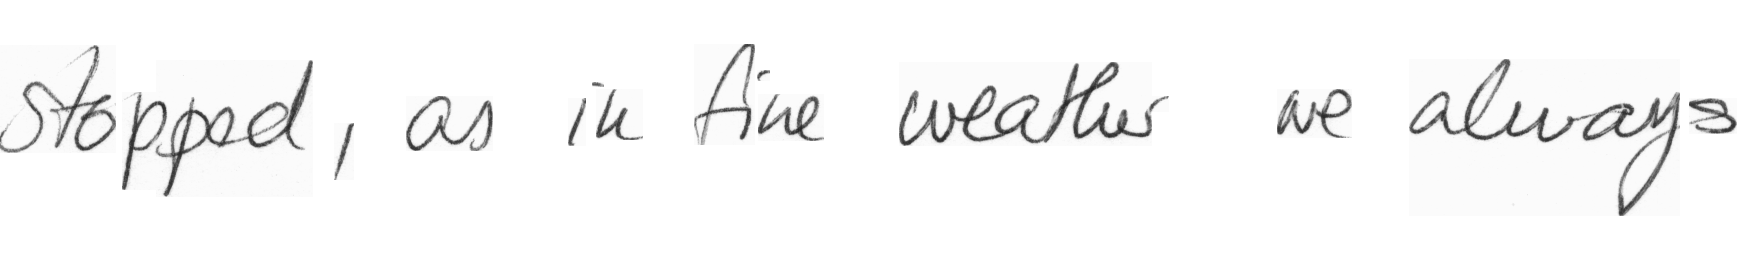 stopped, as in fine weather we always